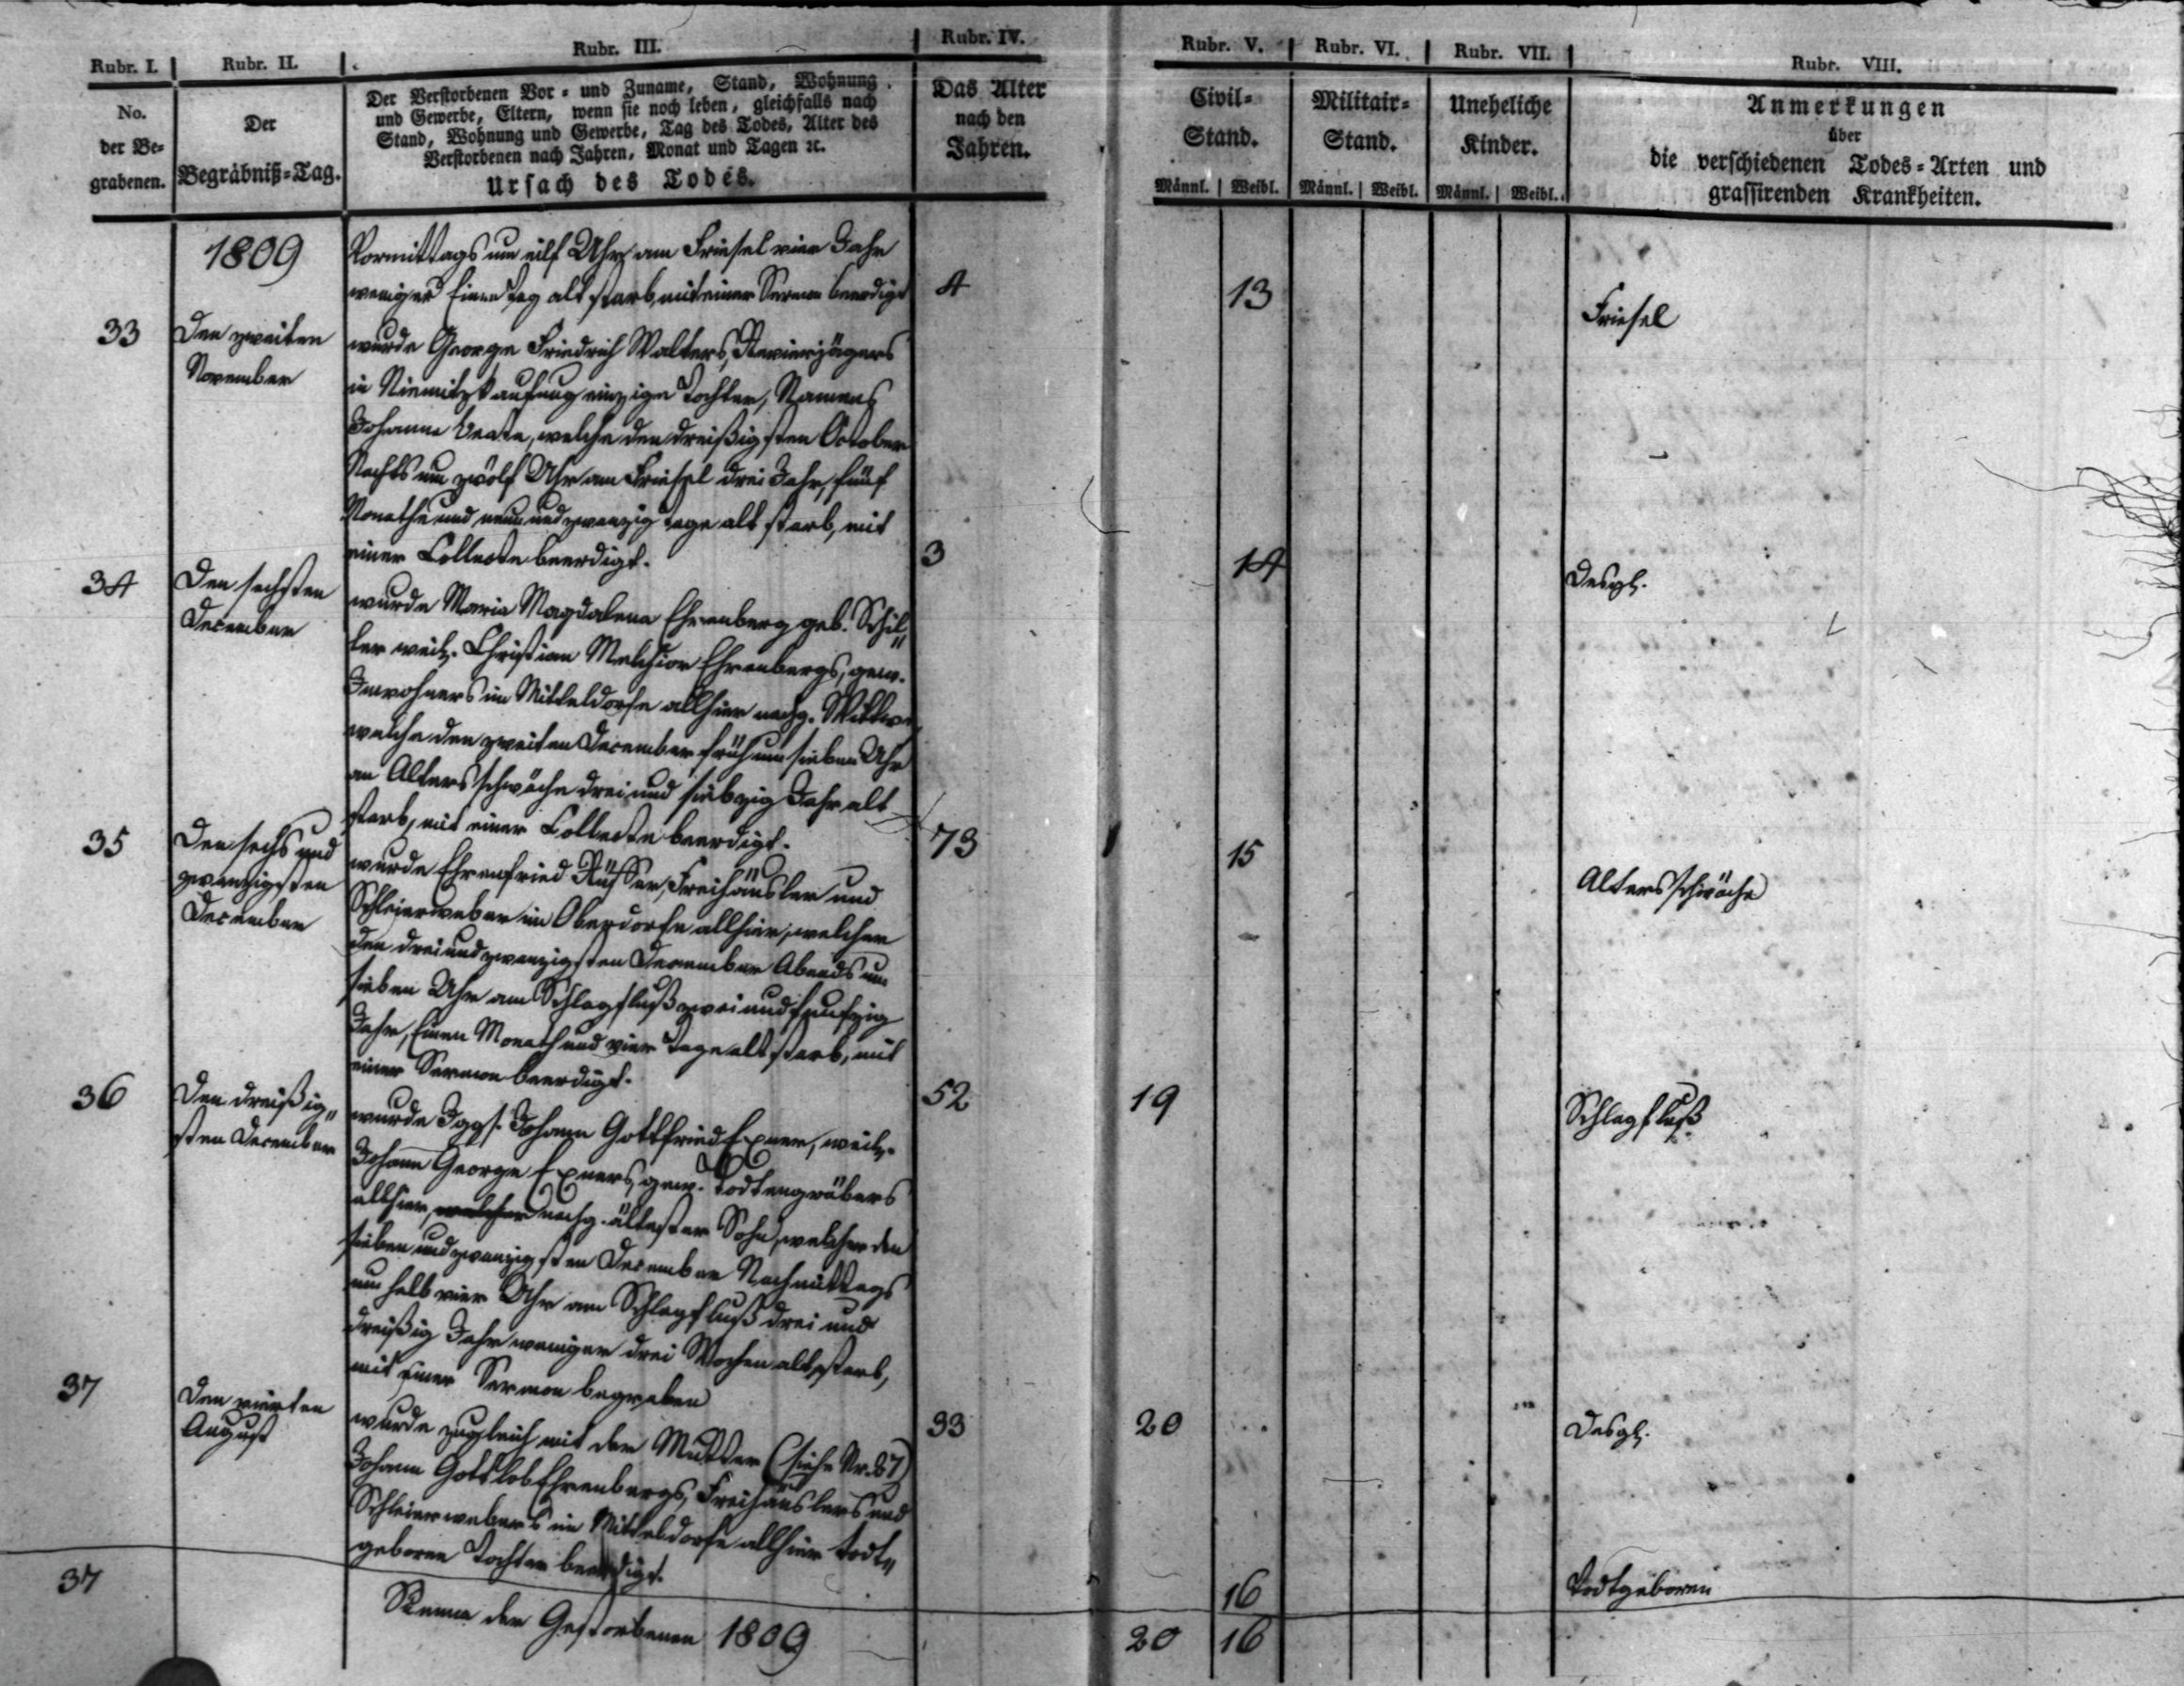 Rubr. I.
Rubr. II.
Rubr. III.
Rubr. IV.
Rubr. V.
Rubr. VI.
Rubr. VII.
Rubr. VIII.
No.
der Be-
grabenen.
Der
Begräbniß-Tag.
Der Verstorbenen Vor- und Zuname, Stand, Wohnung
und Gewerbe, Eltern, wenn sie noch leben, gleichfalls nach
Stand, Wohnung und Gewerbe, Tag des Todes, Alter des
Verstorbenen nach Jahren, Monat und Tagen ꝛc.
Ursach des Todes.
Das Alter
nach den
Jahren.
Civil-
Stand.
Männl. Weibl.
Militair-
Stand.
Männl. Weibl.
Uneheliche
Kinder.
Männl. Weibl.
Anmerkungen
über
die verschiedenen Todes-Arten und
grassirenden Krankheiten.
1809
Vormittags um eilf Uhr am Friesel vier Jahr
weniger Einen Tag alt starb, mit einer Sermon beerdigt
4
13
Friesel
33
Den zweiten
November
wurde George Friedrich Walters, Revierjägers
in einzige Tochter, Namens
Johanne Beate, welche den dreißigsten October
Nachts um zwölf Uhr am Friesel drei Jahr, fünf
Monathe und neun und zwanzig Tage alt starb, mit
einer Collecte beerdigt.
3
14
Desgl.
34
Den sechsten
December
wurde Maria Magdalena Ehrenberg geb. Schil„
ler weil. Christian Melchior Ehrenbergs, gew.
Inwohners im Mitteldorfe allhier nachg. Wittwe
welche den zweiten December früh um sieben Uhr
an Altersschwäche drei und siebzig Jahr alt
starb, mit einer Collecte beerdigt.
73
15
Altersschwäche
35
Den sechs und
zwanzigsten
December
wurde Ehrenfried Rüffer, Freihäusler und
Schleierweber im Oberdorfe allhier, welcher
den drei und zwanzigsten December Abends um
sieben Uhr am Schlagfluß zwei und funfzig
Jahr, Einen Monath und vier Tage alt starb, mit
einer Sermon beerdigt.
52
19
Schlagfluß
36
Den dreißig„
sten December
wurde Jggs. Johann Gottfried Exner, weil.
Johann George Exners, gew. Todtengräbers
allhier, welcher nachg. ältester Sohn, welcher den
sieben und zwanzigsten December Nachmittags
um halb vier Uhr am Schlagfluß drei und
dreißig Jahr weniger drei Wochen alt starb,
mit einer Sermon begraben
33
20
Desgl.
37
Den vierten
August
wurde zugleich mit der Mutter (siehe Nr. 27)
Johann Gottlob Ehrenbergs, Freihäuslers und
Schleierwebers im Mitteldorfe allhier todt„
geborne Tochter beerdigt.
16
Todtgeboren
37
Summa der Gestorbenen 1809
20
16